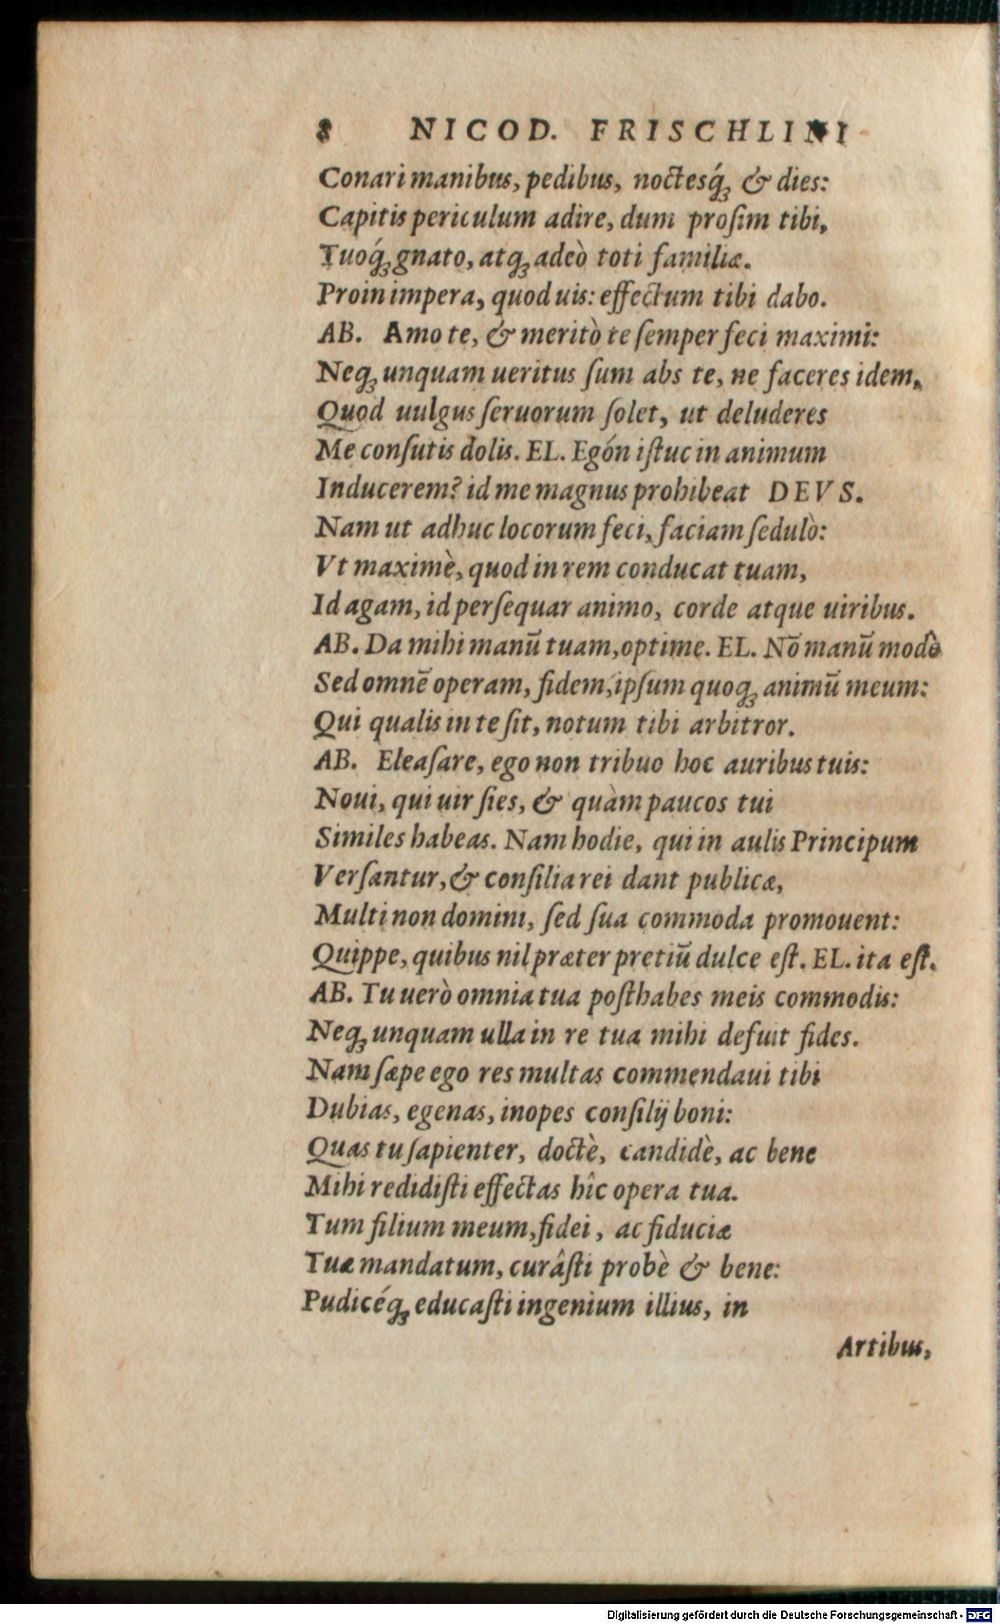 8 NICOD. FRISCHLINI
Conari manibus, pedibus, noctesq́ꝫ & dies:
Capitis periculum adire, dum proſim tibi,
Tuoq́ꝫ gnato, atqꝫ adeò toti familiæ.
Proin impera, quod uis: effectum tibi dabo.
AB. Amo te, & meritò te ſemper feci maximi:
Neqꝫ unquam ueritus ſum abs te, ne faceres idem,
Quod uulgus ſeruorum ſolet, ut deluderes
Me conſutis dolis. EL. Egón iſtuc in animum
Inducerem? id me magnus prohibeat DEVS.
Nam ut adhuc locorum feci, faciam ſedulò:
Vt maximè, quod in rem conducat tuam,
Id agam, id perſequar animo, corde atque uiribus.
AB. Da mihi manū tuam, optime. EL. Nō manū modò
Sed omnē operam, fidem, ipſum quoqꝫ animū meum:
Qui qualis in te ſit, notum tibi arbitror.
AB. Eleaſare, ego non tribuo hoc auribus tuis:
Noui, qui uir ſies, & quàm paucos tui
Similes habeas. Nam hodie, qui in aulis Principum
Verſantur, & conſilia rei dant publicæ,
Multi non domini, ſed ſua commoda promouent:
Quippe, quibus nil præter pretiū dulce eſt. EL. ita eſt.
AB. Tu uerò omnia tua poſthabes meis commodis:
Neqꝫ unquam ulla in re tua mihi defuit fides.
Nam ſæpe ego res multas commendaui tibi
Dubias, egenas, inopes conſilij boni:
Quas tu ſapienter, doctè, candidè, ac bene
Mihi redidiſti effectas hîc opera tua.
Tum filium meum, fidei, ac fiduciæ
Tuæ mandatum, curâſti probè & bene:
Pudicéqꝫ educaſti ingenium illius, in
Artibus,
Digitalisierung gefördert durch die Deutsche Forschungsgemeinschaft - DFG